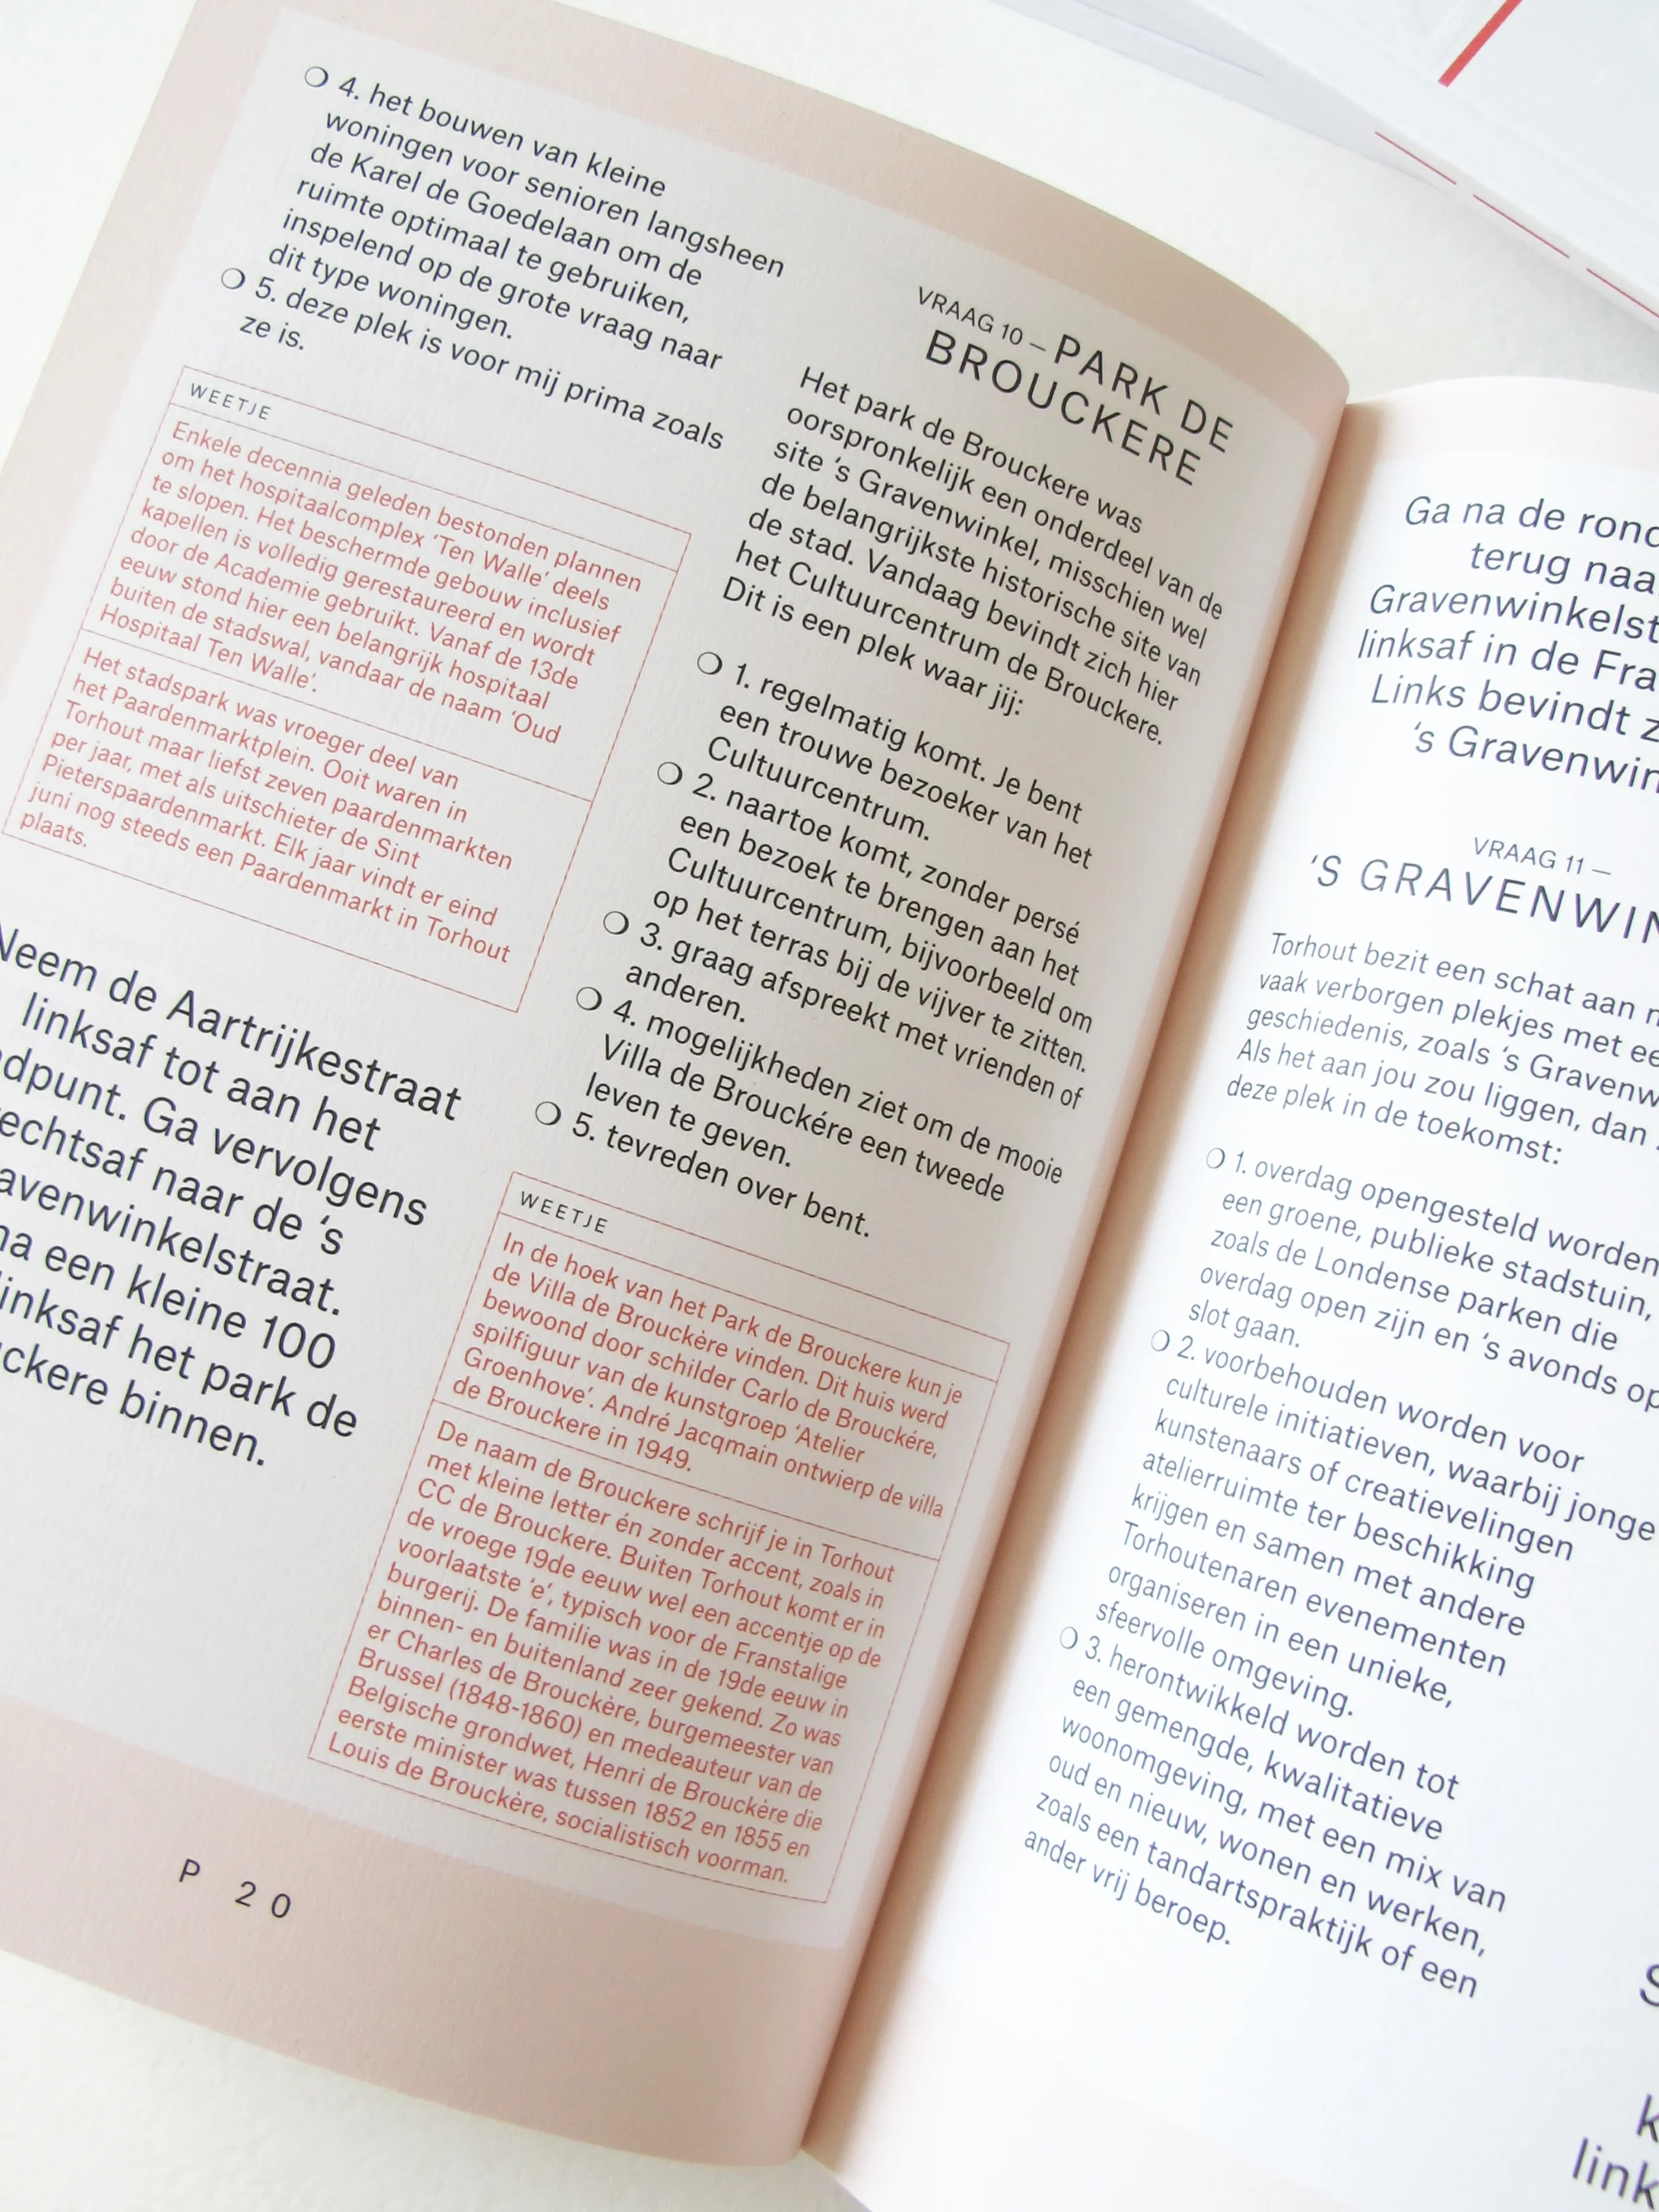 4. het bouwen van kleine
woningen voor senioren langsheen
de Karel de Goedelaan om de
ruimte optimaal te gebruiken,
inspelend op de grote vraag naar
dit type woningen.
5. deze plek is voor mij prima zoals
ze is.
WEETJE
Enkele decennia geleden bestonden plannen
om het hospitaalcomplex ‘Ten Walle’ deels
te slopen. Het beschermde gebouw inclusief
kapellen is volledig gerestaureerd en wordt
door de Academie gebruikt. Vanaf de 13de
eeuw stond hier een belangrijk hospitaal
buiten de stadswal, vandaar de naam ‘Oud
Hospitaal Ten Walle’.
Het stadspark was vroeger deel van
het Paardenmarktplein. Ooit waren in
Torhout maar liefst zeven paardenmarkten
per jaar, met als uitschieter de Sint
Pieterspaardenmarkt. Elk jaar vindt er eind
juni nog steeds een Paardenmarkt in Torhout
plaats.
Neem de Aartrijkestraat
linksaf tot aan het
dpunt. Ga vervolgens
echtsaf naar de ‘s
avenwinkelstraat.
na een kleine 100
linksaf het park de
ckere binnen.
P 20
VRAAG 10 – PARK DE
BROUCKERE
Het park de Brouckere was
oorspronkelijk een onderdeel van de
site ‘s Gravenwinkel, misschien wel
de belangrijkste historische site van
de stad. Vandaag bevindt zich hier
het Cultuurcentrum de Brouckere.
Dit is een plek waar jij:
1. regelmatig komt. Je bent
een trouwe bezoeker van het
Cultuurcentrum.
2. naartoe komt, zonder persé
een bezoek te brengen aan het
Cultuurcentrum, bijvoorbeeld om
op het terras bij de vijver te zitten.
3. graag afspreekt met vrienden of
anderen.
4. mogelijkheden ziet om de mooie
Villa de Brouckére een tweede
leven te geven.
5. tevreden over bent.
WEETJE
In de hoek van het Park de Brouckere kun je
de Villa de Brouckère vinden. Dit huis werd
bewoond door schilder Carlo de Brouckére,
spilfiguur van de kunstgroep ‘Atelier
Groenhove’. André Jacqmain ontwierp de villa
de Brouckere in 1949.
De naam de Brouckere schrijf je in Torhout
met kleine letter én zonder accent, zoals in
CC de Brouckere. Buiten Torhout komt er in
de vroege 19de eeuw wel een accentje op de
voorlaatste ‘e’, typisch voor de Franstalige
burgerij. De familie was in de 19de eeuw in
binnen- en buitenland zeer gekend. Zo was
er Charles de Brouckère, burgemeester van
Brussel (1848-1860) en medeauteur van de
Belgische grondwet, Henri de Brouckère die
eerste minister was tussen 1852 en 1855 en
Louis de Brouckère, socialistisch voorman.
Ga na de rond
terug naa
Gravenwinkelst
linksaf in de Fra
Links bevindt z
‘s Gravenwin
VRAAG 11 –
‘S GRAVENWIN
Torhout bezit een schat aan
vaak verborgen plekjes met ee
geschiedenis, zoals ‘s Gravenw
Als het aan jou zou liggen, dan
deze plek in de toekomst:
1. overdag opengesteld worden
een groene, publieke stadstuin,
zoals de Londense parken die
overdag open zijn en ‘s avonds op
slot gaan.
2. voorbehouden worden voor
culturele initiatieven, waarbij jonge
kunstenaars of creatievelingen
atelierruimte ter beschikking
krijgen en samen met andere
Torhoutenaren evenementen
organiseren in een unieke,
sfeervolle omgeving.
3. herontwikkeld worden tot
een gemengde, kwalitatieve
woonomgeving, met een mix van
oud en nieuw, wonen en werken,
zoals een tandartspraktijk of een
ander vrij beroep.
S
k
link